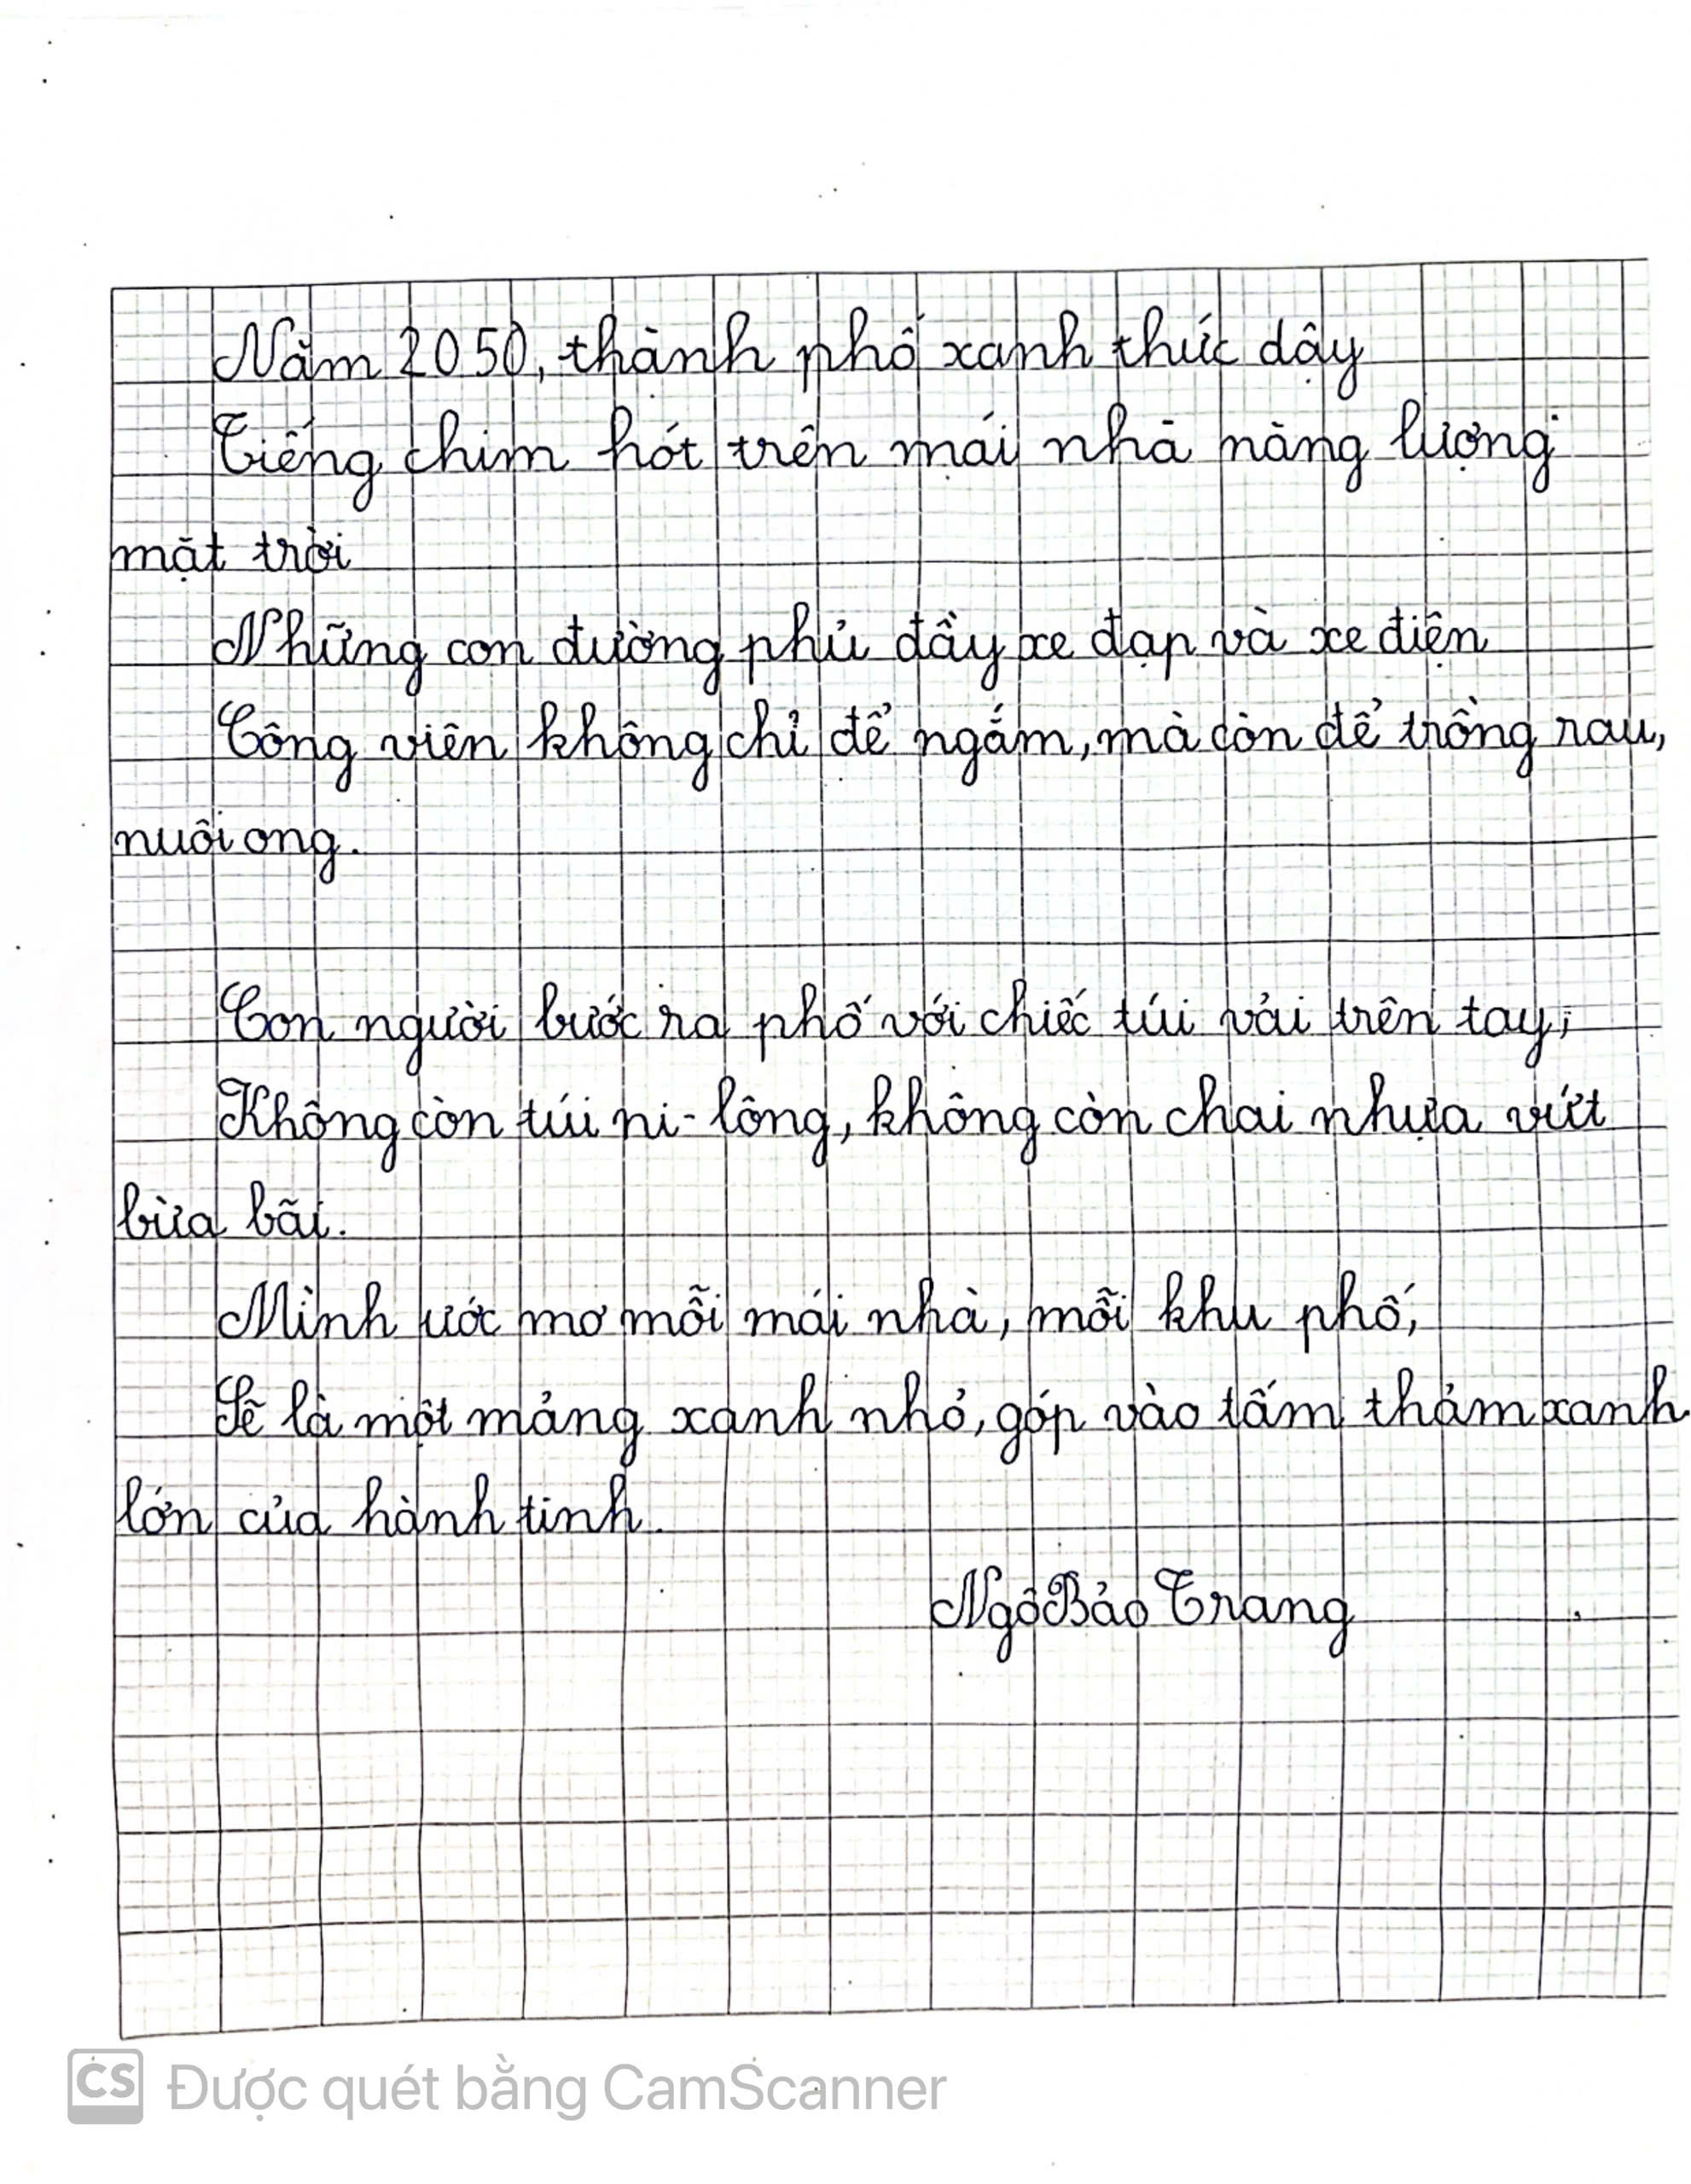 Năm 2050, thành phố xanh thức dậy
Tiếng chim hót trên mái nhà năng lượng
mặt trời
Những con đường phủ đầy xe đạp và xe điện
Công viên không chỉ để ngắm, mà còn để trồng rau,
nuôi ong.
Con người bước ra phố với chiếc túi vải trên tay,
Không còn túi ni-lông, không còn chai nhựa vứt
bừa bãi.
Mình ước mơ mỗi mái nhà, mỗi khu phố,
Sẽ là một mảng xanh nhỏ, góp vào tấm thảm xanh
lớn của hành tinh.
Ngô Bảo Trang
CS Được quét bằng CamScanner